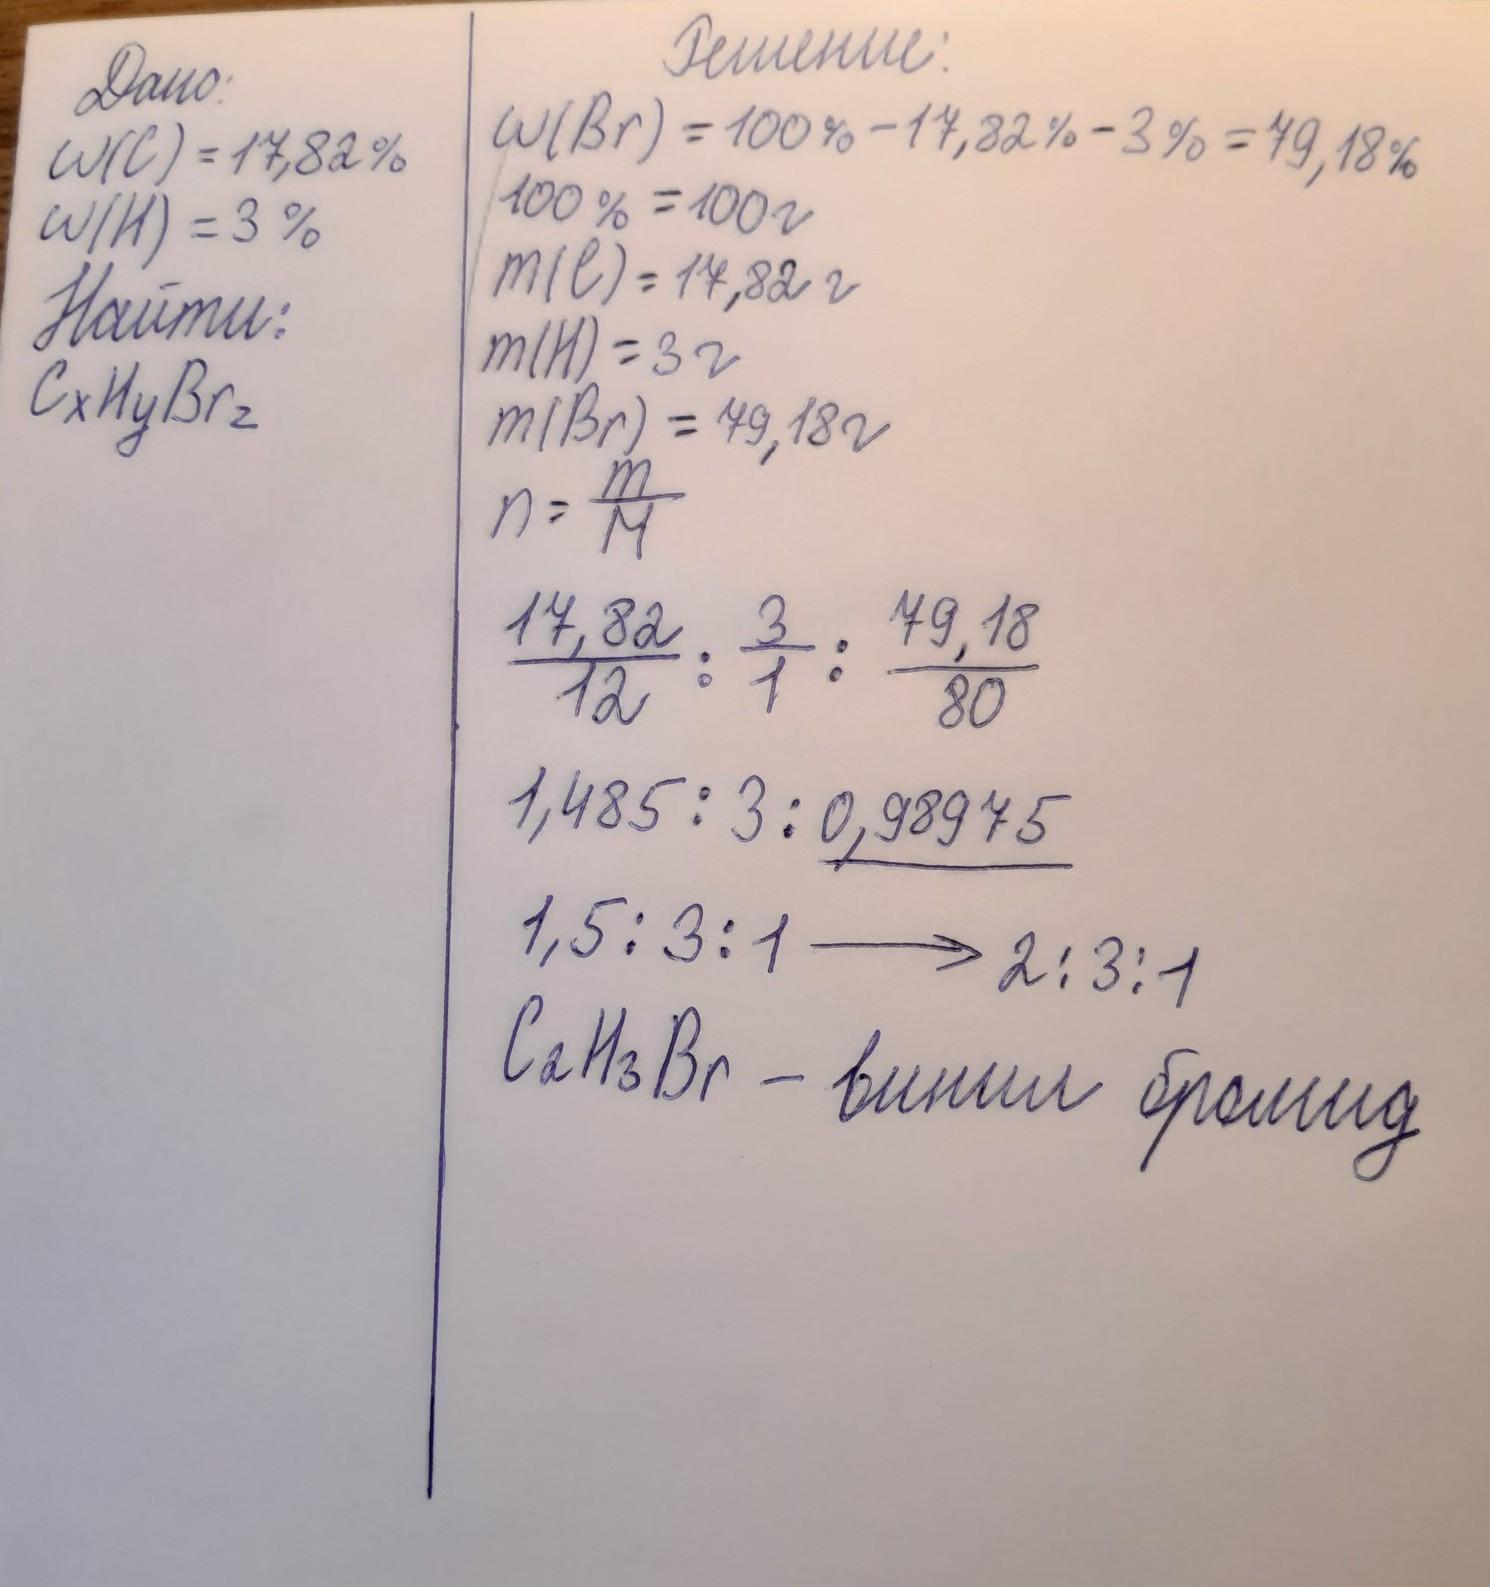 Дано:
w(C) = 17,82%
w(H) = 3%
Найти:
CxHyBrz
Решение:
w(Br) = 100% - 17,82% - 3% = 79,18%
100% = 100г
m(C) = 17,82г
m(H) = 3г
m(Br) = 79,18г
n = m/M
17,82/12 : 3/1 : 79,18/80
1,485 : 3 : 0,98975
1,5 : 3 : 1 → 2 : 3 : 1
C2H3Br – винил бромид